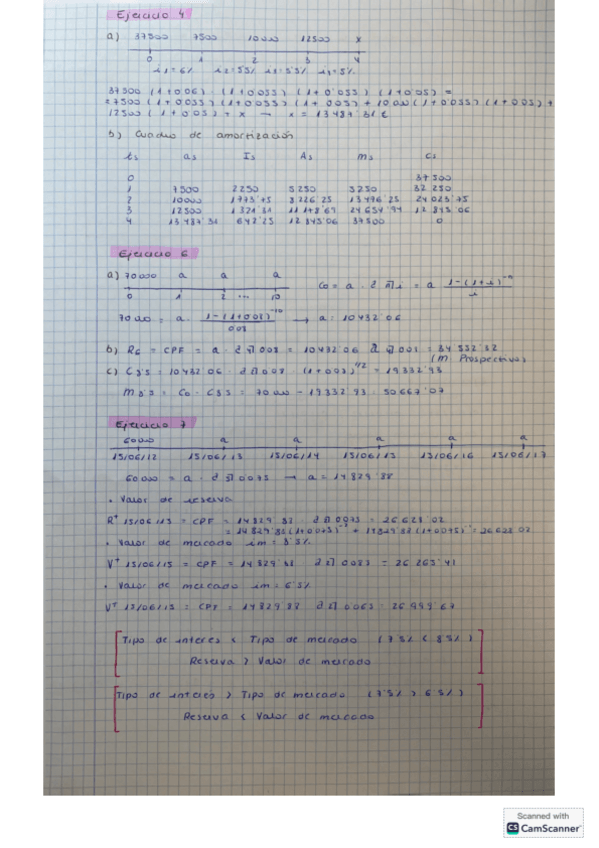 Ejercicio 4
a) 37500 7500 10000 12500 x
0 1 2 3 4
i1=6% i2=5'5% i3=5'5% i4=5%
37500 (1+0'06) · (1+0'055) (1+0'055) (1+0'05) =
=7500 (1+0'055) (1+0'055) (1+0'05) + 10000 (1+0'055) (1+0'05) +
12500 (1+0'05) + x → x = 13487'31 €
b) Cuadro de amortización
ts as Is As ms Cs
0 37500
1 7500 2250 5250 5250 32250
2 10000 1773'75 8226'25 13476'25 24023'75
3 12500 1321'31 11178'69 24654'94 12845'06
4 13487'31 642'25 12845'06 37500 0
Ejercicio 6
a) 70000 a a a
0 1 2 ... 10
Co = a · a n¬i = a 1-(1+i)^-n / i
70000 = a · 1-(1+0'08)^-10 / 0'08 → a = 10432'06
b) R6 = CPF = a · a 4¬0'08 = 10432'06 a 4¬0'08 = 34552'32
(M. Prospectivo)
c) C8'5 = 10432'06 · a 2¬0'08 · (1+0'08)^1/2 = 19332'93
m8'5 = Co - C8'5 = 70000 - 19332'93 = 50667'07
Ejercicio 7
60000 a a a a a
15/06/12 15/06/13 15/06/14 15/06/15 15/06/16 15/06/17
60000 = a · a 5¬0'075 → a = 14829'88
• Valor de reserva
R+ 15/06/15 = CPF = 14829'88 a 2¬0'075 = 26628'02
= 14829'88 (1+0'075)^-1 + 14829'88 (1+0'075)^-2 = 26628'02
• Valor de mercado im = 8'5%
V+ 15/06/15 = CPF = 14829'88 · a 2¬0'085 = 26265'41
• Valor de mercado im = 6'5%
V+ 15/06/15 = CPF = 14829'88 a 2¬0'065 = 26999'67
Tipo de interes < Tipo de mercado (7'5% < 8'5%)
Reserva > Valor de mercado
Tipo de interés > Tipo de mercado (7'5% > 6'5%)
Reserva < Valor de mercado
Scanned with
CS CamScanner